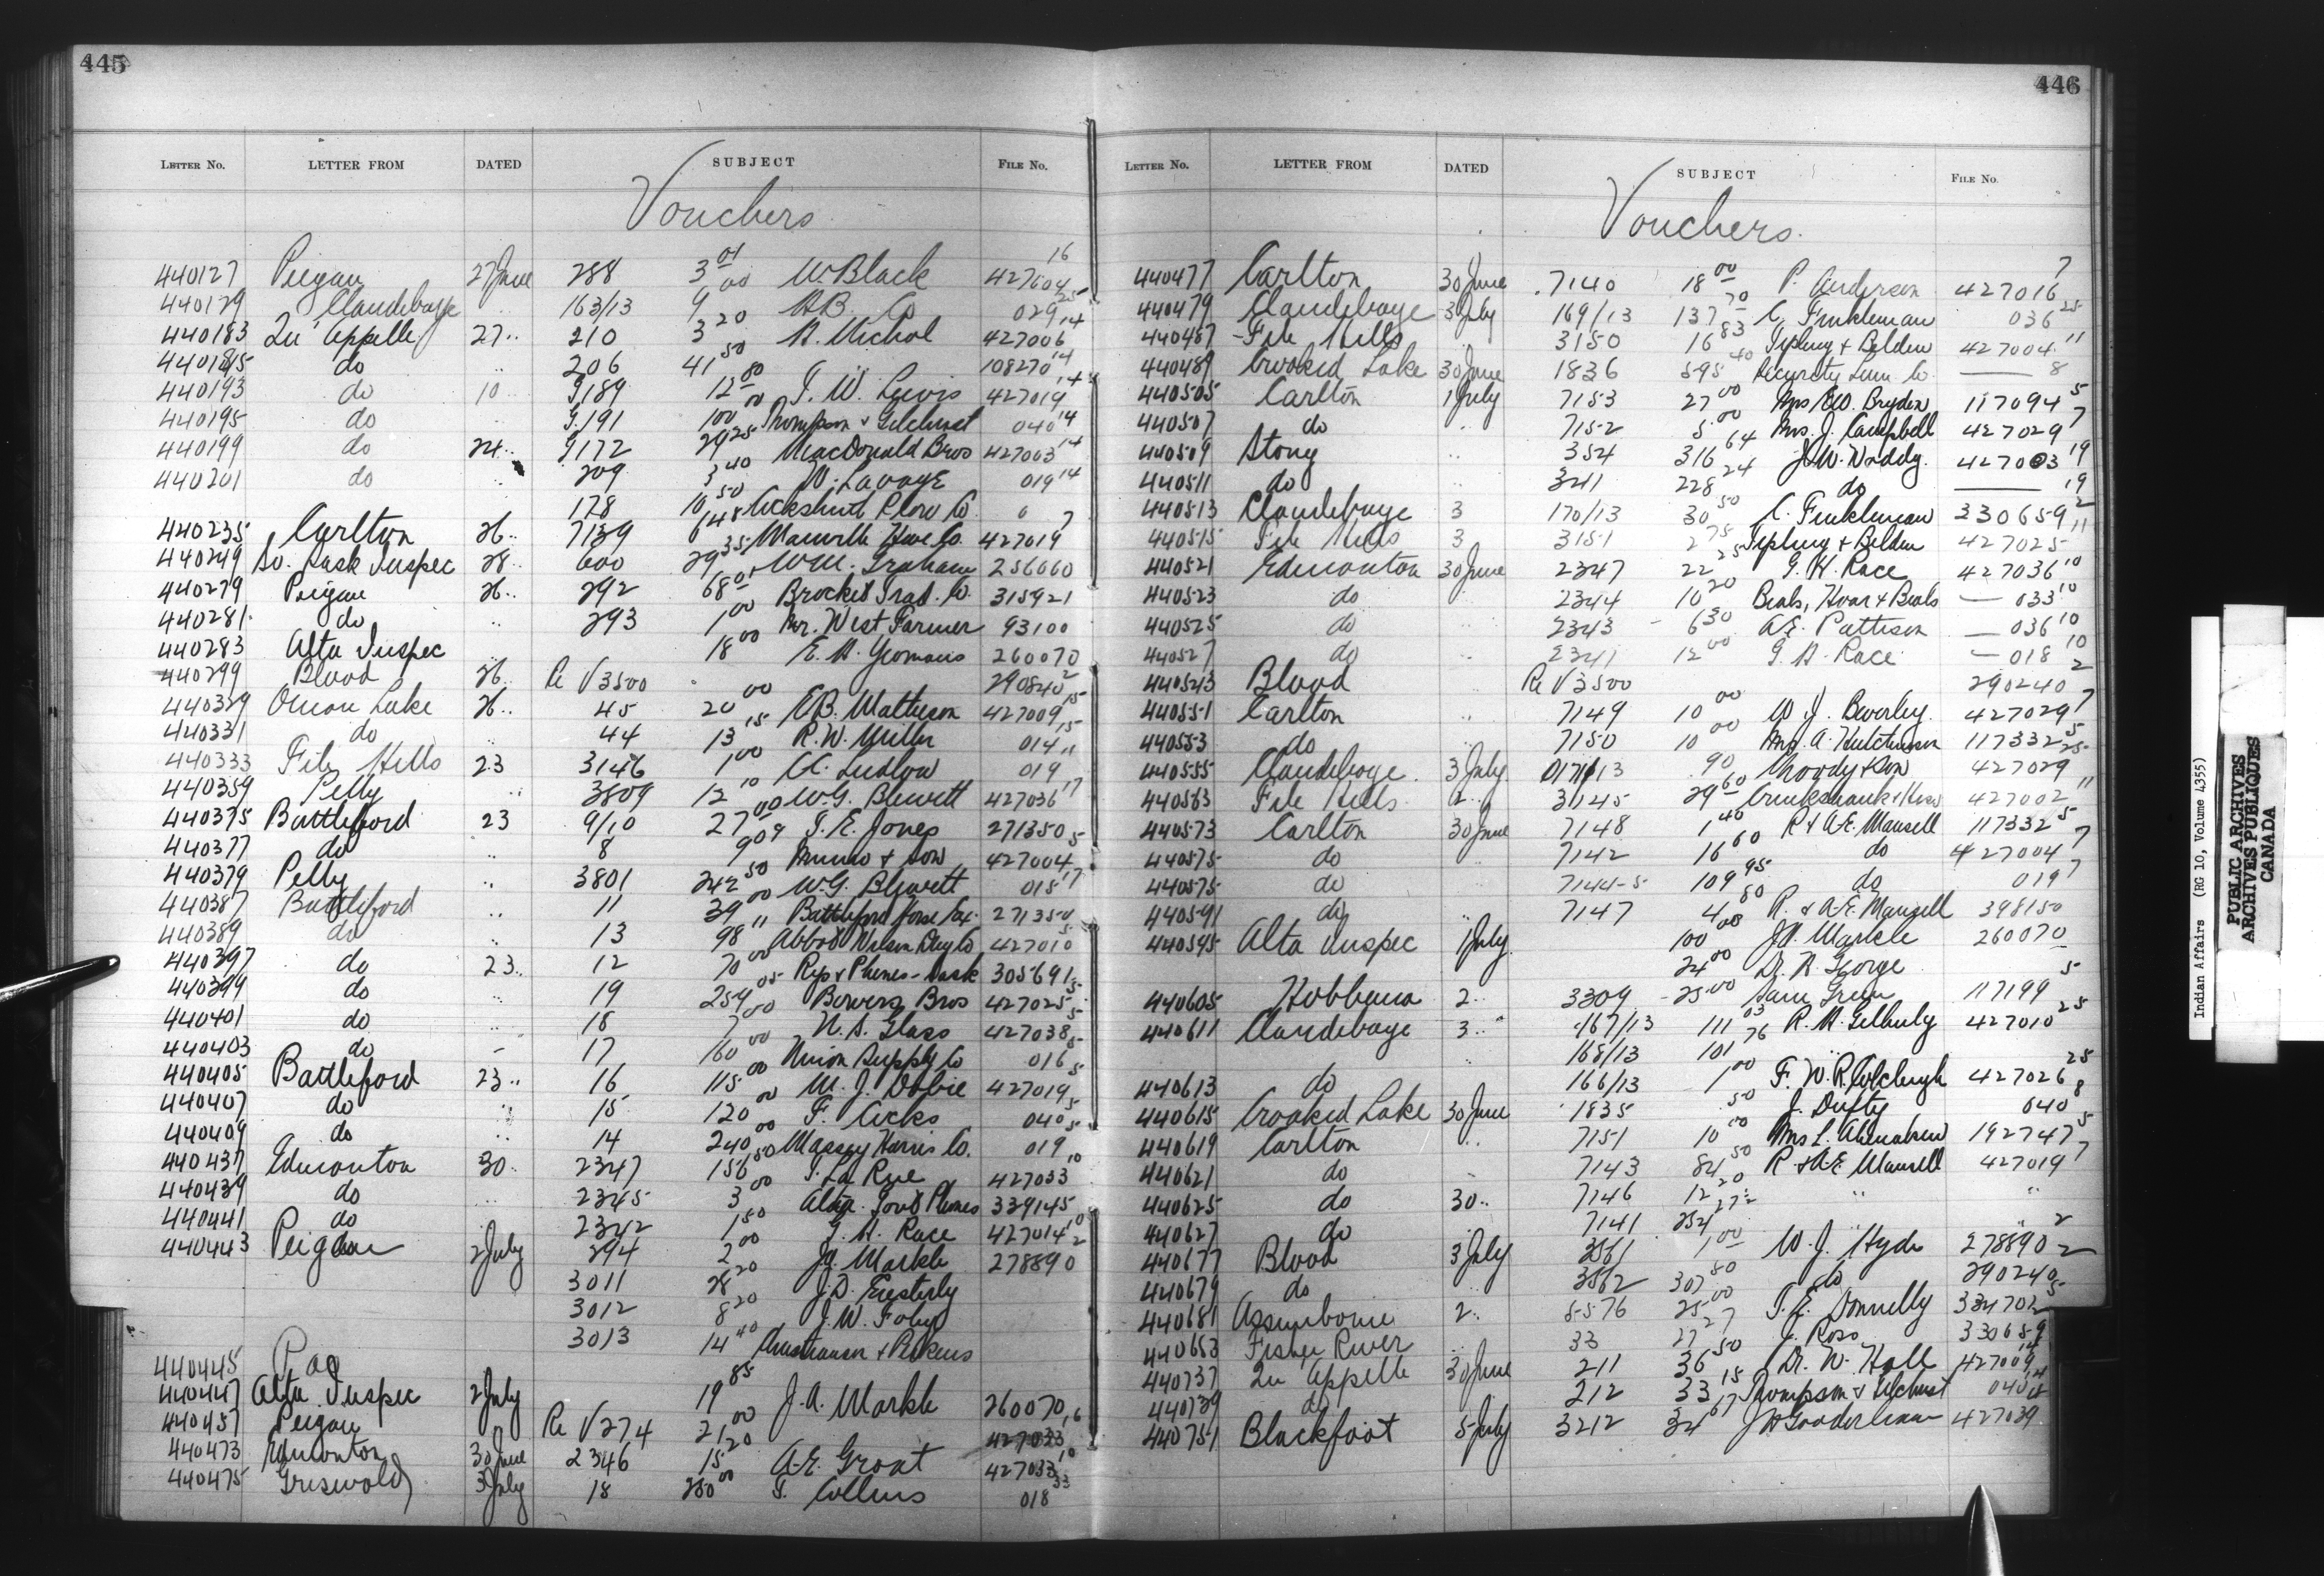 445
LETTER No. LETTER FROM DATED SUBJECT FILE No.
Vouchers
440127 Piegan 27 June 288 3 01 W. Black 427004 16
440179 Clandeboye 163/13 9 00 H.B. Co 029 25
440183 Qu'Appelle 27 .. 210 3 20 A. Nichol 427006 14
440185 do .. 206 41 50 108270 14
440193 do 10 .. 9189 12 80 T. W. Lewis 427019 14
440195 do 9191 100 00 Thompson & Gilchrist 040 14
440199 do 24 .. 9172 29 25 MacDonald Bros 427003 14
440201 do .. 209 3 40 W. Savage 019 14
178 10 50 Cockshutt Plow Co 0
440235 Carlton 26 .. 7139 648 Manville Hdwe Co. 427019 7
440249 So. Sask Inspec 28 .. 600 29 35 W.M. Graham 256060
440279 Piegan 26 .. 292 68 01 Brocket Trad. Co. 315921
440281 do .. 293 1 00 Mr. West Farmer 93100
440283 Alta Inspec .. 18 00 E. H. Yeomans 260070
440299 Blood 26 .. Re V 3500 290240 2
440329 Onion Lake 26 .. 45 20 00 E.B. Matheson 427009 15
440331 do 44 13 15 R. W. Miller 014 15
440333 File Hills 23 3146 1 00 C. Ludlow 019 11
440359 Pelly .. 3809 12 10 W.G. Blewett 427036 17
440375 Battleford 23 9/10 27 00 T. E. Jones 271350
440377 do .. 8 9 09 Munro & Son 427004 5
440379 Pelly .. 3801 242 50 W.G. Blewett 015 17
440387 Battleford .. 11 39 00 Battleford Horse Ex. 271350
440389 do .. 13 98 11 Abbot Nelson Drug Co 427010 5
440397 do 23 .. 12 70 00 Rys & Phones - Sask 305691
440399 do .. 19 259 05 Bowers Bros 427025 5
440401 do .. 18 7 00 N. S. Glass 427038 5
440403 do 17 160 00 Union Supply Co 016 5
440405 Battleford 23 .. 16 115 00 M. J. Dobie 427019 5
440407 do .. 15 120 00 F. Cicks 040 5
440409 do .. 14 240 00 Massey Harris Co. 019 5
440437 Edmonton 30 .. 2347 156 50 T. La Rue 427033 10
440439 do .. 2345 3 00 Alta. Govt Phones 339145
440441 do 2342 1 50 G. H. Race 427014 10
440443 Peigan 2 July 294 2 00 J.A. Markle 278890 2
3011 28 20 J.D. Easterly
3012 8 20 J. W. Foley
3013 14 40
440445
440447 Alta. Inspec 2 July 19 85 J. A. Markle 260070
440457 Peigan Re V 274 21 00 427033 16
440473 Edmonton 30 June 2346 15 20 A.E. Groat 427033 10
440475 Griswold 3 July 18 280 00 T. Collins 018 33
446
LETTER No. LETTER FROM DATED SUBJECT FILE No.
Vouchers
440477 Carlton 30 June 7140 18 00 P. Anderson 427016 7
440479 Clandeboye 3 July 169/13 137 70 C. Finkleman 036 25
440487 File Hills 3150 16 83 Tipling & Belden 427004 11
440489 Crooked Lake 30 June 1836 595 40 Security Lum Co. — 8
440505 Carlton 1 July 7153 27 00 Mrs. W. Bryden 117094 5
440507 do .. 7152 5 00 Mrs. J. Campbell 427029 7
440509 Stony .. 354 316 64 J.W. Waddy. 427003 19
440511 do .. 341 228 24 do — 19
440513 Clandeboye 3 170/13 30 50 C. Finkleman 330659 2
440515 File Hills 3 3151 2 75 Tipling & Belden 427025 11
440521 Edmonton 30 June 2347 22 25 G. H. Race 427036 10
440523 do .. 2344 10 20 Beals, Hoar & Beals — 033 10
440525 do .. 2343 6 30 A.E. Pattison — 036 10
440527 do .. 2341 12 00 G. H. Race — 018 10
440543 Blood Re V 3500 290240 2
440551 Carlton .. 7149 10 00 W. J. Beverley. 427029 7
440553 do .. 7150 10 00 Mrs. A. Hutchinson 117332 5
440555 Clandeboye. 3 July 0171/13 90 Moody & Son 427029 25
440563 File Hills 2 .. 3145 29 60 Cruikshank & Hose 427002 11
440573 Carlton 30 June 7148 1 40 R & A.E. Mansell 117332 5
440575 do 7142 16 60 do 427004 7
440575 do 7144-5 109 95 do 019 7
440591 do .. 7147 4 80 R. & A.E. Mansell 398150
440595 Alta Inspec 1 July 100 00 J.A. Markle 260070
24 00 Dr. R. George
440605 Hobbema 2 .. 3309 25 00 Sam Green 117199 5
440611 Clandeboye 3 .. 167/13 111 03 R. H. Gilhuly 427010 25
.. 168/13 101 76 ..
440613 do 166/13 1 00 F. W. R. Colcleugh 427026 25
440615 Crooked Lake 30 June 1835 50 J. Dufty 040 8
440619 Carlton .. 7151 10 00 Mrs L. Ahenakew 192747 5
440621 do 7143 84 50 R. & A.E. Mansell 427019 7
440625 do 30 .. 7146 12 20 " "
440627 do 7141 254 "
440677 Blood 3 July 3561 1 00 W. J. Hyde 278890 2
440679 do .. 3562 307 80 do 290240 2
440681 Assiniboine 2 .. 5576 25 00 T. E. Donnelly 334702 5
440653 Fisher River 33 27 27 J. Ross 330659
440737 Qu Appelle 30 June 211 36 50 Dr. W. Hall 427009 14
440739 do 212 33 15 Thompson & Gilchrist 040 14
440751 Blackfoot 5 July 3212 34 67 J H Gooderham 427039
Indian Affairs (RG 10, Volume 4355)
PUBLIC ARCHIVES
ARCHIVES PUBLIQUES
CANADA